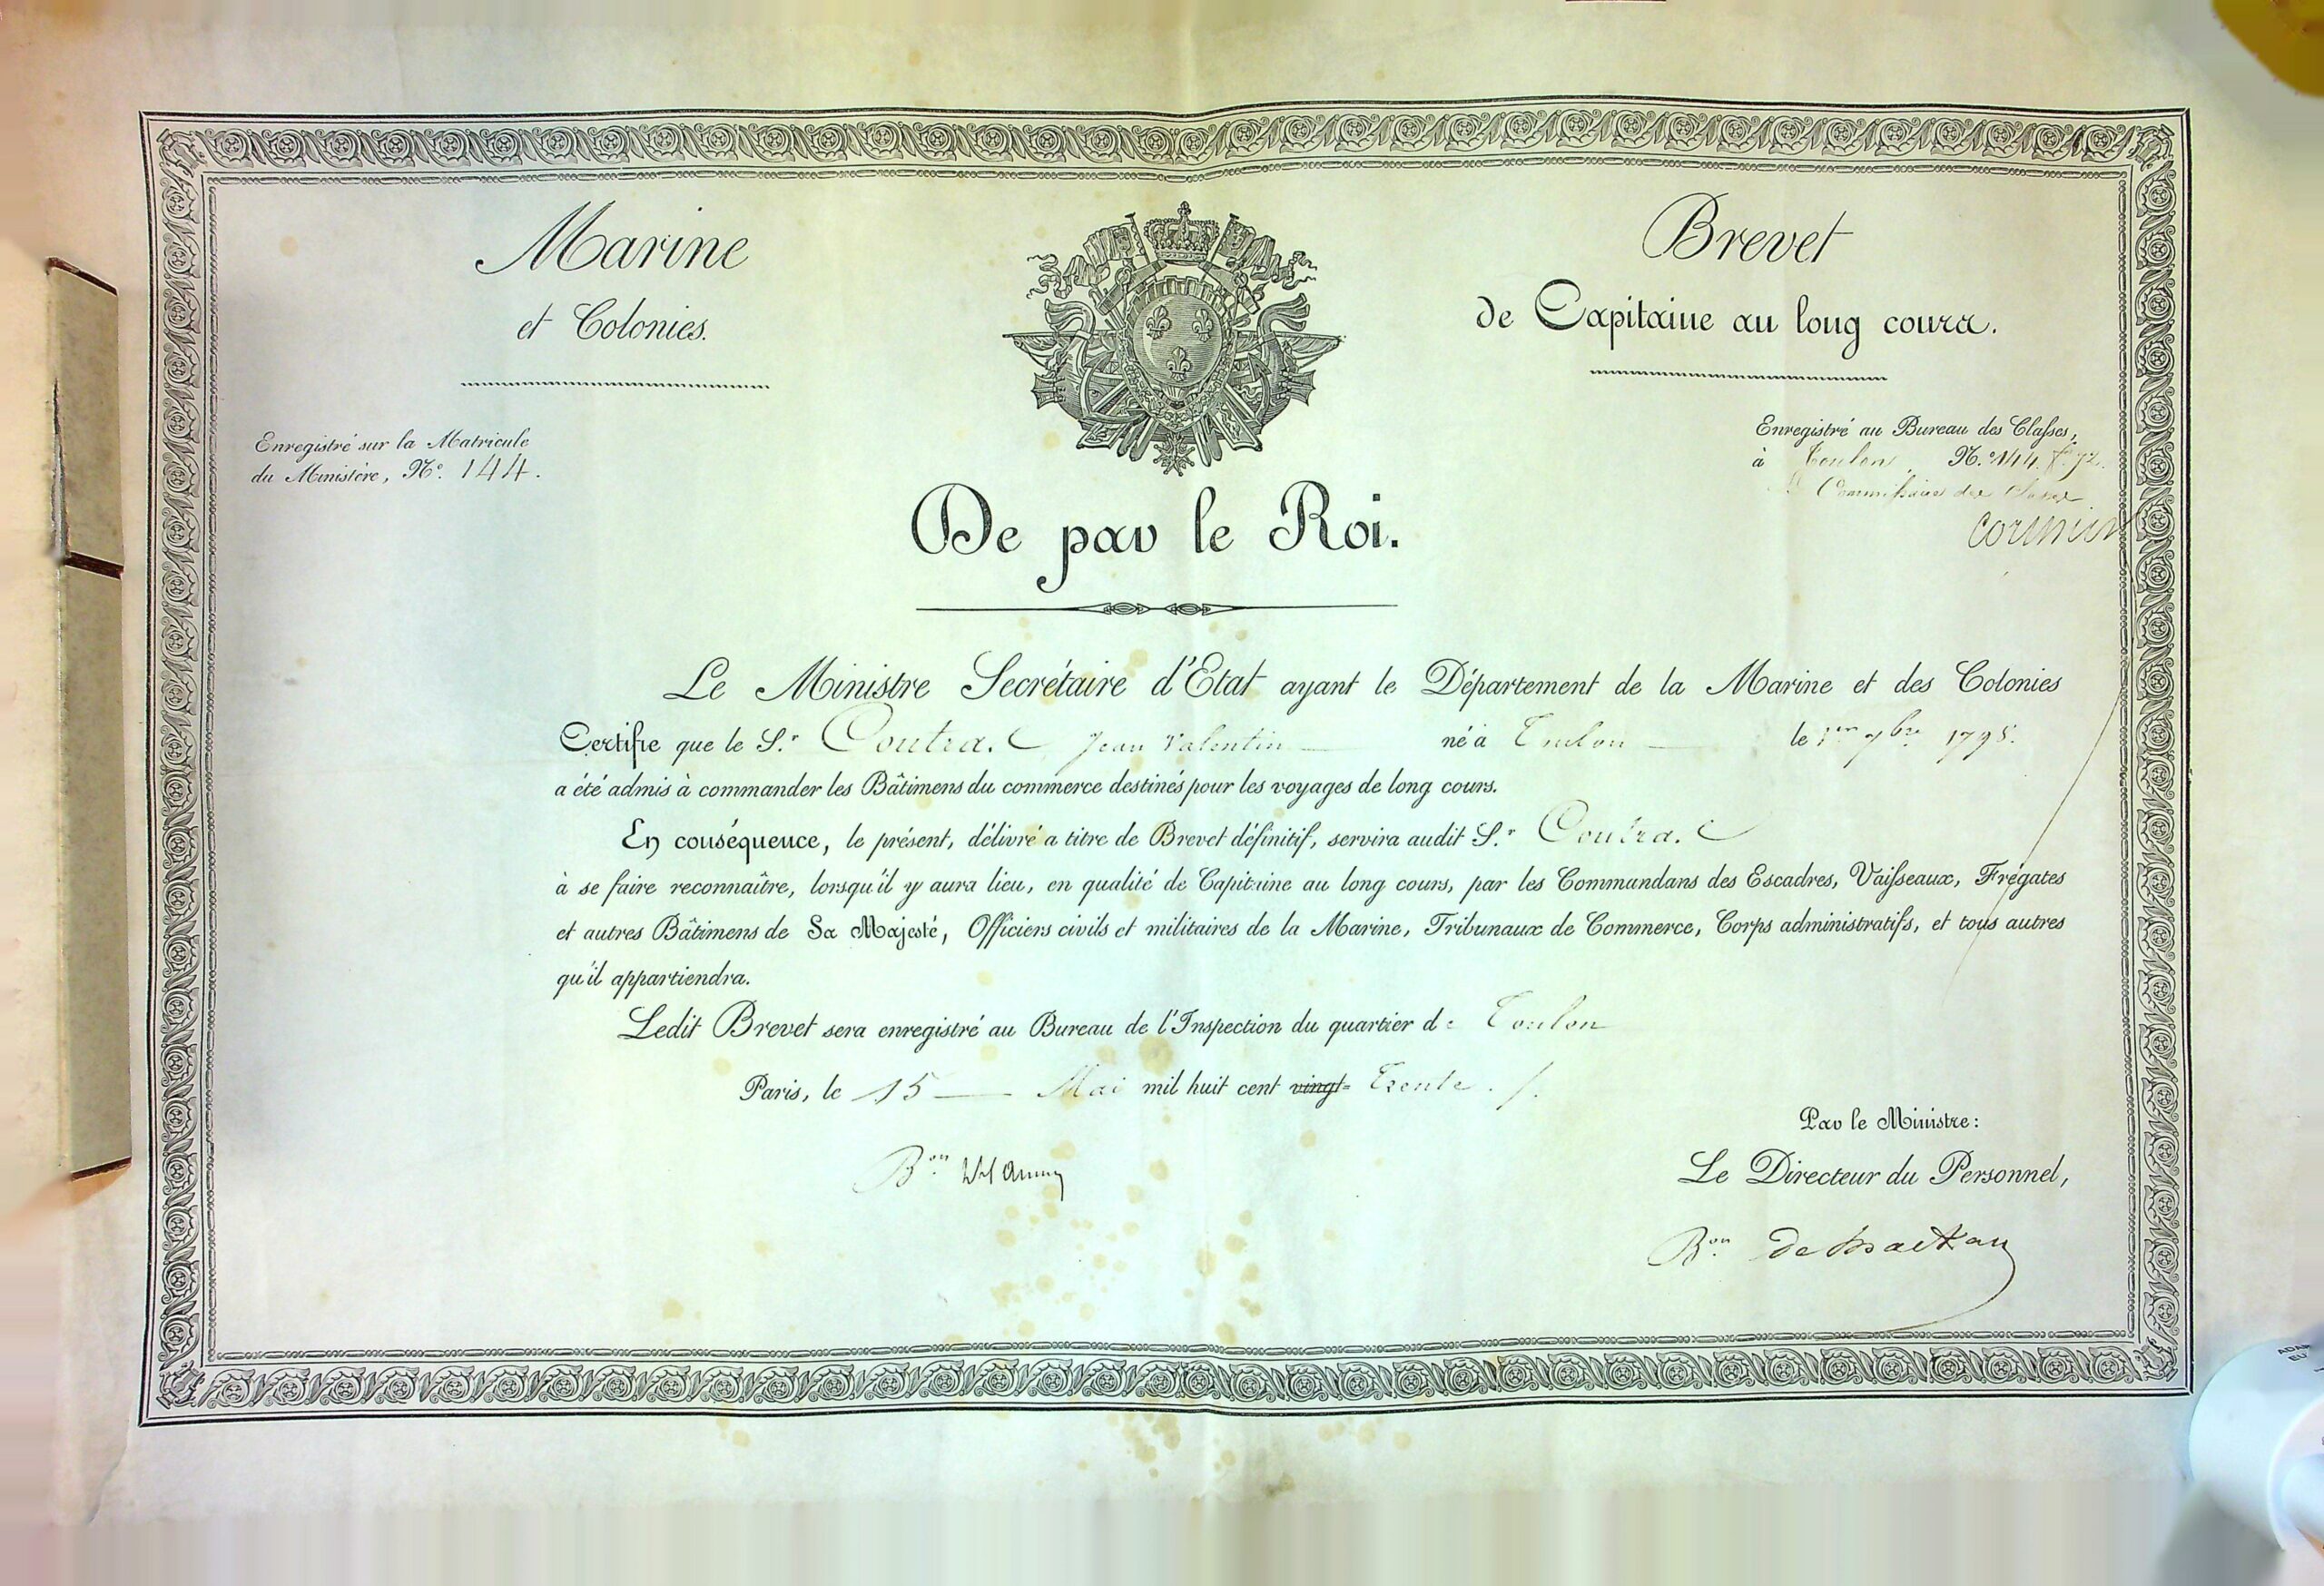 Marine
et Colonies.
Brevet
de Capitaine au long cours.
Enregistré sur la Matricule
du Ministère, N.º 144.
Enregistré au Bureau des Classes,
à Toulon, N.º 144. fº 72.
Commissaire des Classes
Cormier
De par le Roi.
Le Ministre Secrétaire d'Etat ayant le Département de la Marine et des Colonies
Certifie que le S.r Jean Valentin né à Toulon le 1er 7bre 1798.
a été admis à commander les Bâtimens du commerce destinés pour les voyages de long cours.
En conséquence, le présent, délivré a titre de Brevet définitif, servira audit S.r
à se faire reconnaître, lorsqu'il y aura lieu, en qualité de Capitaine au long cours, par les Commandans des Escadres, Vaisseaux, Frégates
et autres Bâtimens de Sa Majesté, Officiers civils et militaires de la Marine, Tribunaux de Commerce, Corps administratifs, et tous autres
qu'il appartiendra.
Ledit Brevet sera enregistré au Bureau de l'Inspection du quartier de Toulon
Paris, le 15 Mai mil huit cent vingt- Trente.
Par le Ministre:
Le Directeur du Personnel,
B.on
B.on de Mackau